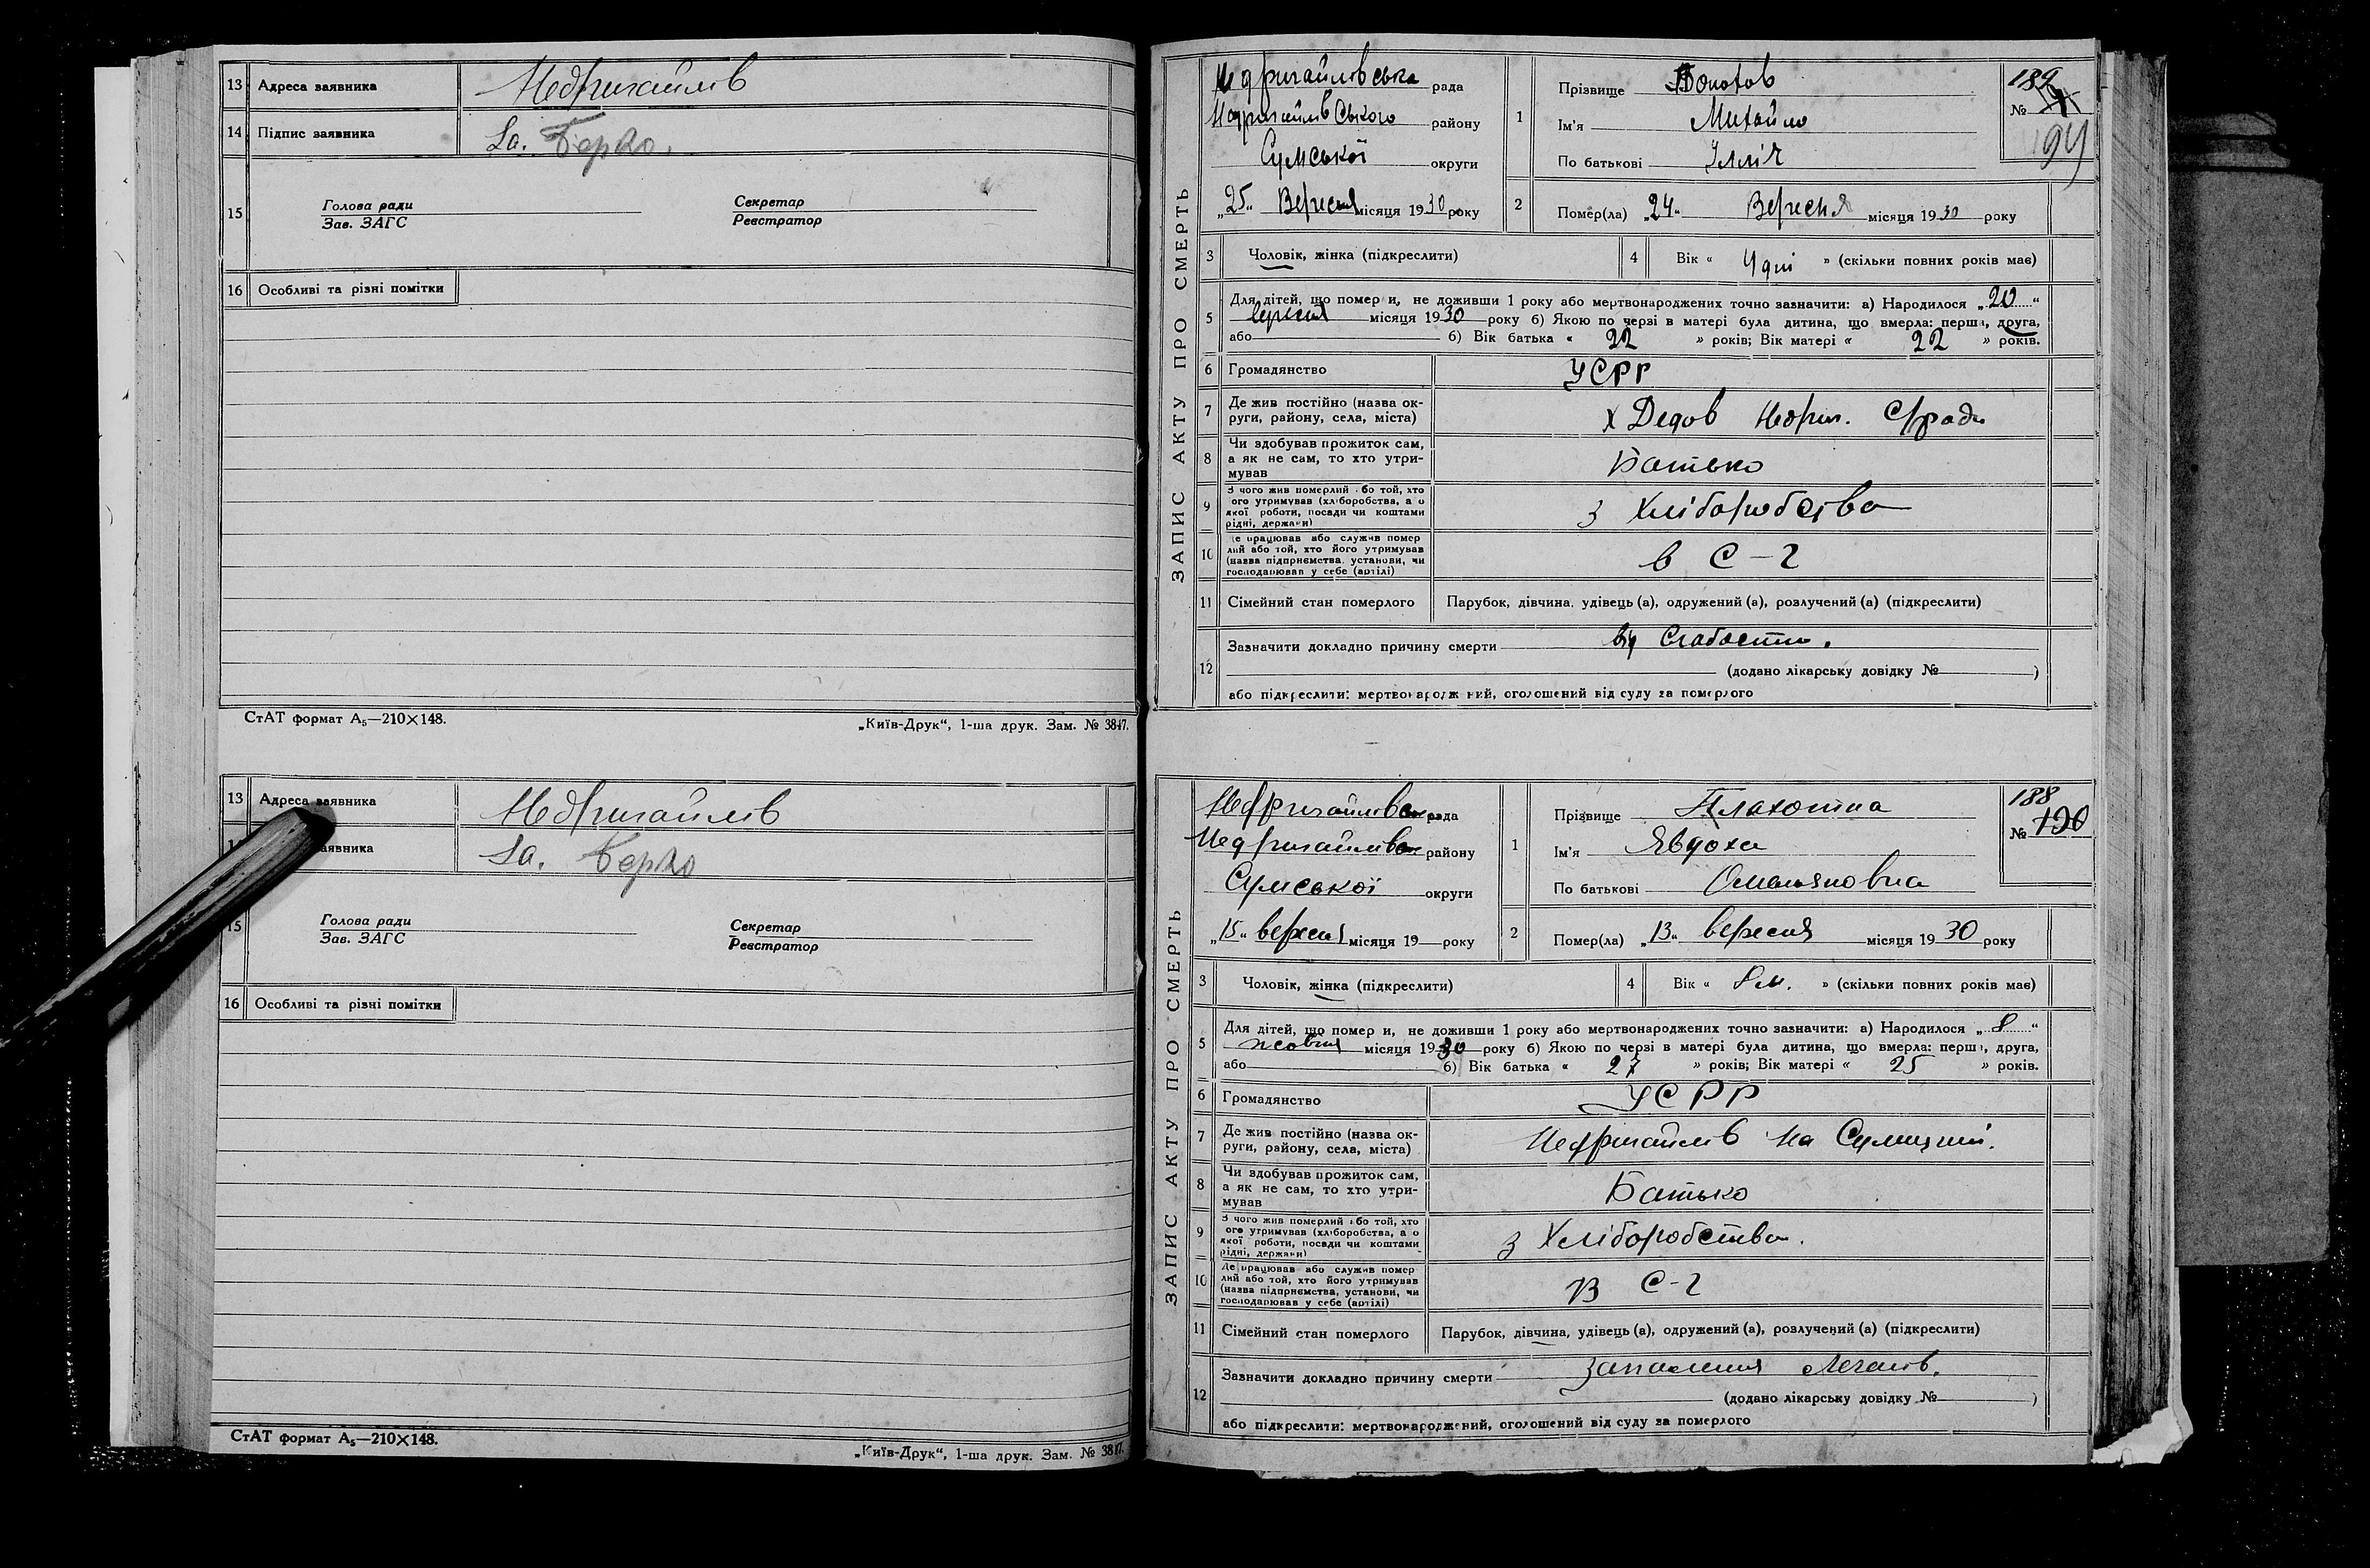 13 Адреса заявника Недригайлів
14 Підпис заявника За. Берко.
15 Голова ради Секретар
Зав. ЗАГС Реєстратор
16 Особливі та різні помітки
СтАТ формат А₅—210×148. „Київ-Друк“, 1-ша друк. Зам. № 3847.
13 Адреса заявника Недригайлів
аявника За. Берко
15 Голова ради Секретар
Зав. ЗАГС Реєстратор
16 Особливі та різні помітки
СтАТ формат А₅—210×148. „Київ-Друк“, 1-ша друк. Зам. № 3847.
ЗАПИС АКТУ ПРО СМЕРТЬ
Недригайлівська рада
Недригайлівського району
Сумської округи
„25“ Вересня місяця 1930 року
1 Прізвище
Ім'я Михайло
По батькові Ілліч
189
№
194
2 Помер(ла) „24“ Вересня місяця 1930 року
3 Чоловік, жінка (підкреслити)
4 Вік « 4 дні » (скільки повних років має)
5 Для дітей, що померли, не доживши 1 року або мертвонароджених точно зазначити: а) Народилося „20“
вересня місяця 1930 року б) Якою по черзі в матері була дитина, що вмерла: перша, друга,
або б) Вік батька « 22 » років; Вік матері « 22 » років.
6 Громадянство УСРР
7 Де жив постійно (назва ок-
руги, району, села, міста) х Дедов Недриг. С/ради
8 Чи здобував прожиток сам,
а як не сам, то хто утри-
мував Батько
9 З чого жив померлий або той, хто
ого утримував (хліборобства, а о
якої роботи, посади чи коштами
рідні, держави) з Хліборобства
10 е працював або служив помер
лий або той, хто його утримував
(назва підприємства, установи, чи
господарював у себе (артілі) в С-г
11 Сімейний стан померлого Парубок, дівчина, удівець (а), одружений (а), розлучений (а) (підкреслити)
12 Зазначити докладно причину смерти від Слабости.
(додано лікарську довідку № )
або підкреслити: мертвонароджений, оголошений від суду за померлого
ЗАПИС АКТУ ПРО СМЕРТЬ
Недригайлівська рада
району
Сумської округи
„15“ вересня місяця 19 року
1 Прізвище Плахотна
Ім'я Явдоха
По батькові Омеляновна
188
№ 190
2 Помер(ла) „13“ вересня місяця 1930 року
3 Чоловік, жінка (підкреслити)
4 Вік « 8 м. » (скільки повних років має)
5 Для дітей, що померли, не доживши 1 року або мертвонароджених точно зазначити: а) Народилося „8“
жовтня місяця 1930 року б) Якою по черзі в матері була дитина, що вмерла: перша, друга,
або б) Вік батька « 27 » років; Вік матері « 25 » років.
6 Громадянство УСРР
7 Де жив постійно (назва ок-
руги, району, села, міста) Недригайлів на
8 Чи здобував прожиток сам,
а як не сам, то хто утри-
мував Батько
9 З чого жив померлий або той, хто
ого утримував (хліборобства, а о
якої роботи, посади чи коштами
рідні, держави) з Хліборобства.
10 Де працював або служив помер
лий або той, хто його утримував
(назва підприємства, установи, чи
господарював у себе (артілі) В С-г
11 Сімейний стан померлого Парубок, дівчина, удівець (а), одружений (а), розлучений (а) (підкреслити)
12 Зазначити докладно причину смерти запалення Легенів.
(додано лікарську довідку № )
або підкреслити: мертвонароджений, оголошений від суду за померлого